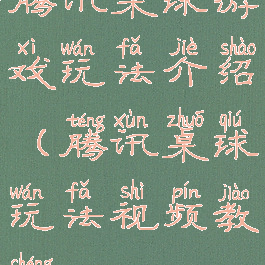 腾讯桌球游
xì wán fǎ jiè shào
戏玩法介绍
téng xùn zhuō qiú
(腾讯桌球
wán fǎ shì pín jiào
玩法视频教
chéng